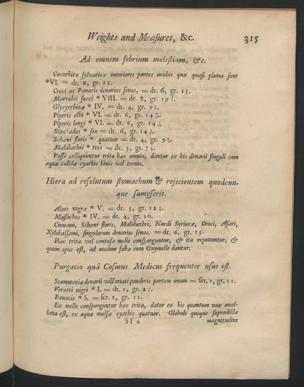 Weights and Measures, &c. 315
Ad omnem febrium molestiam, &c.
Cucurbitæ sylvaticæ interiores partes aridas quæ quasi pluma sunt
*VI. = dr. 6, gr. 15.
Croci ac Panacis denarios senos, = dr. 6, gr. 15.
Marrubii succi *VIII. = dr. 8, gr.
Glycyrrhizæ *IV. = dr. 4, gr.
Piperis albi *VI. = dr. 6, gr.
Piperis longi *VI. = dr. 6, gr.
Stœchados * sex = dr. 6, gr.
Schœni floris * quatuor = dr. 4, gr.
Malabathri * tres = dr. 3, gr.
Passo colliquuntur trita hæc omnia, dantur ex his denarii singuli cum
aquæ calidæ cyathis binis vel ternis.
Hiera ad resolutum stomachum & rejicientem quodcun-
que sumpserit.
Aloes nigræ * V. = dr. 5, gr.
Mastiches * IV. = dr. 4, gr. 10.
Cinnami, Schœni floris, Malabathri, Nardi Syriacæ, Croci, Asari,
Xylobalsami, singulorum denarios senos, = dr. 6, gr. 15.
Hæc trita vel contusa melle consparguntur, & ita reponuntur, &
quum opus est, ad modum fabæ cum Oxymelle dantur.
Purgatio quâ Cosmus Medicus frequenter usus est.
Scammoniæ denarii victoriati ponderis partem unam = scr. 1, gr. 11.
Veratri nigri * I. = dr. 1, gr.
Panacis * S. = scr. 1, gr. 11.
Ex melle consparguntur hæc trita, datur ex his quantum nux avel-
lana est, ex aquæ mulsæ cyathis quatuor. Globuli quoque supradictæ
S s 2 magnitudine